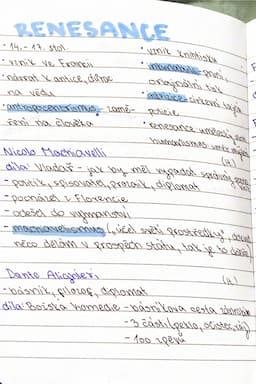 RENESANCE
• 14. - 17. stol.
• vznik ve Francii
• návrat k antice, důraz
na vědu
• antropocentrismus - zamě-
ření na člověka
• vznik knihtisku
originální tisk
• renesance umělost,
humanismus
Nicolo Machiavelli (it.)
díla: Vladař - jak by měl vypadat správný
- politik, spisovatel, prozaik, diplomat
- pocházel z Florencie
- odešel do vyhnanství
- machiavelismus („účel světí prostředky",
něco dělám v prospěch státu, tak je to
Dante Alighieri (it.)
- básník, filozof, diplomat
díla: Božská komedie - básníkova cesta
- 3 části (peklo, očistec, ráj)
- 100 zpěvů